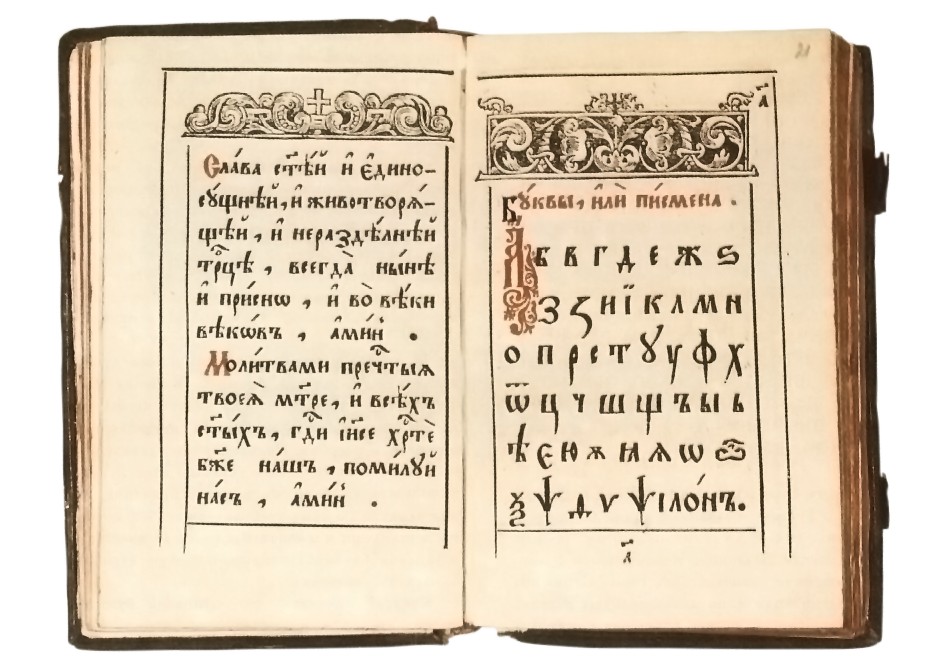 Сла́ва ст҃ѣ́й и҆ є҆дино-
сꙋ́щнѣй, и҆ животворѧ́-
щей, и҆ нераздѣ́лнѣй
тр҇оцѣ, всегда̀ ны́нѣ
и҆ при́снѡ, и҆ во̀ вѣ́ки
вѣкѡ́въ, а҆ми́нь.
Моли́твами преч҇тыѧ
твоеѧ̀ мт҃ре, и҆ всѣ́хъ
ст҃ы́хъ, гд҇и і҆и҃се хр҇тѐ
бж҃е на́шъ, поми́лꙋй
на́съ, а҆ми́нь.
21
а҃
Бꙋ́квы, и҆лѝ пи́смена.
А б в г д е ж ѕ
З ꙁ и ї к л м н
о п р с т ꙋ у ф х
ѿ ц ч ш щ ъ ы ь
ѣ є ю ѫ ꙗ ѧ ѡ ѽ
ѯ ѱ д ѵ ѱіло́нъ.
а҃